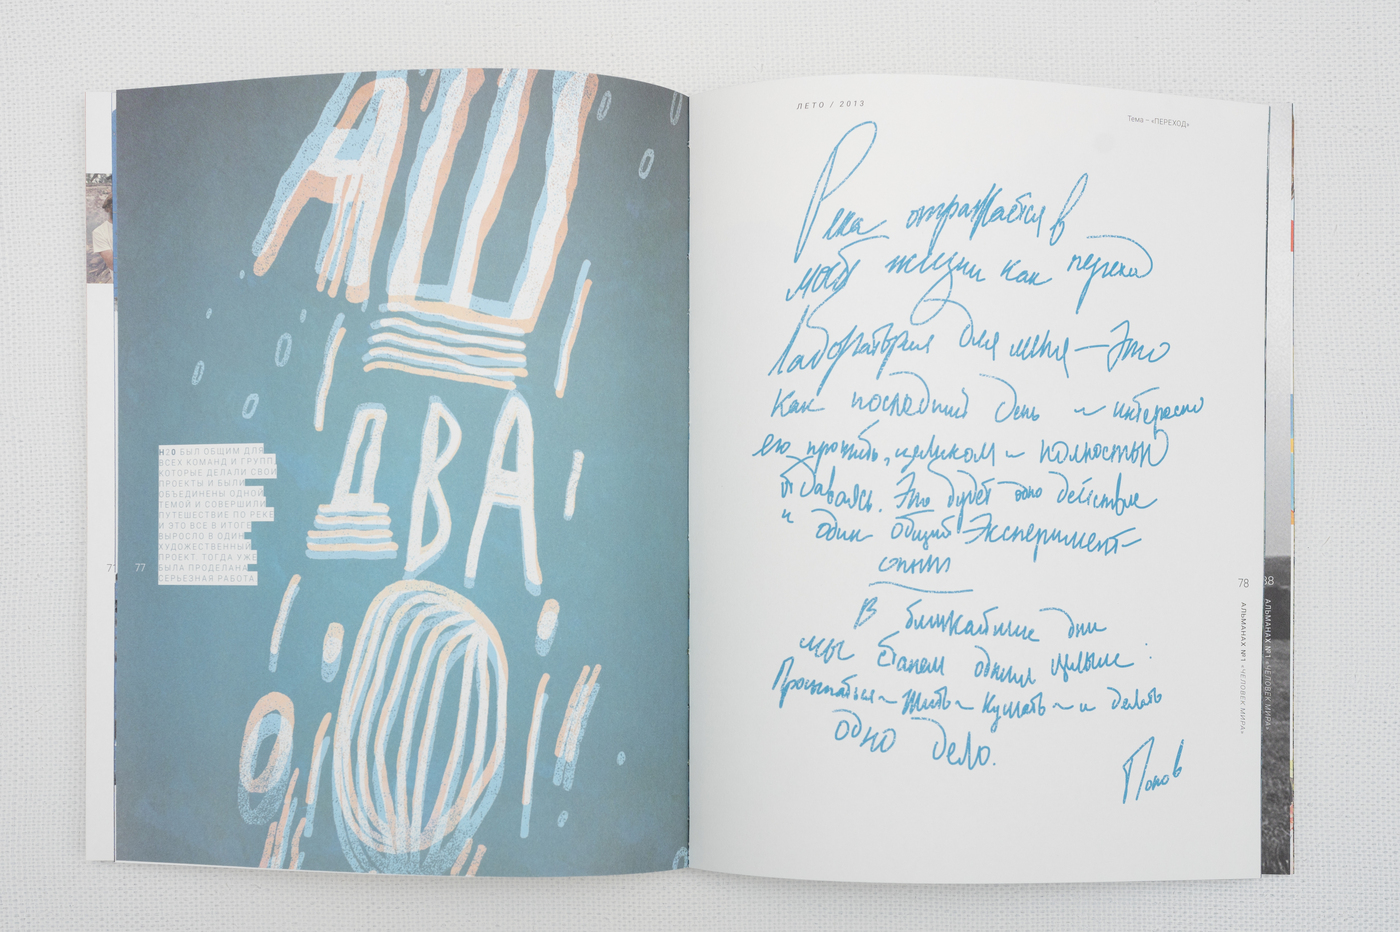 АШ
ДВА
О
H2O БЫЛ ОБЩИМ ДЛЯ
ВСЕХ КОМАНД И ГРУПП,
КОТОРЫЕ ДЕЛАЛИ СВОИ
ПРОЕКТЫ И БЫЛИ
ОБЪЕДИНЕНЫ ОДНОЙ
ТЕМОЙ И СОВЕРШИЛИ
ПУТЕШЕСТВИЕ ПО РЕКЕ
И ЭТО ВСЕ В ИТОГЕ
ВЫРОСЛО В ОДИН
ХУДОЖЕСТВЕННЫЙ
ПРОЕКТ. ТОГДА УЖЕ
БЫЛА ПРОДЕЛАНА
СЕРЬЕЗНАЯ РАБОТА
77
ЛЕТО / 2013
Тема – «ПЕРЕХОД»
Река отражается в
моей жизни как переход
Лаборатория для меня — Это
как последний день ~ интересно
его прожить, целиком ~ полностью
отдаваясь. Это будет одно действие
и один общий Эксперимент-
опыт
В ближайшие дни
мы станем одним целым.
Просыпаться ~ жить ~ кушать ~ и делать
одно дело.
Попов
78
АЛЬМАНАХ №1 «ЧЕЛОВЕК МИРА»
88
АЛЬМАНАХ №1 «ЧЕЛОВЕК МИРА»